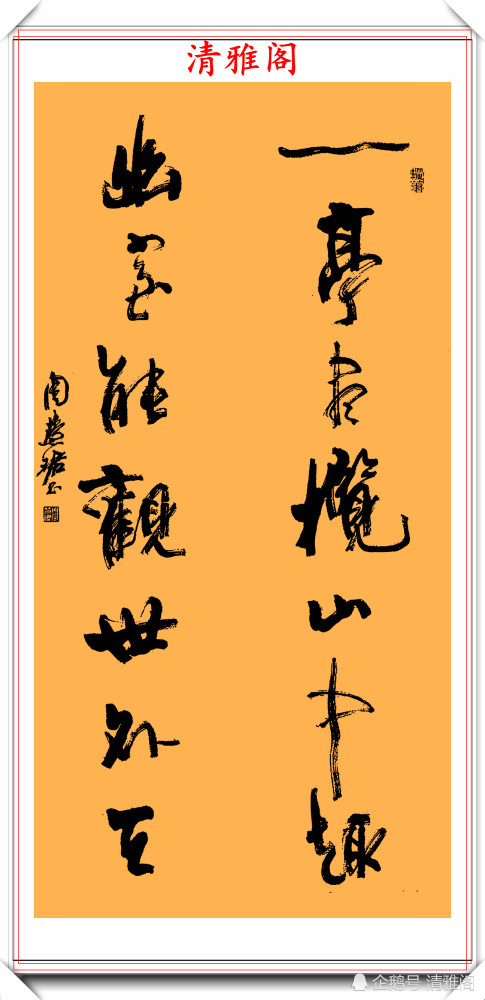 清雅阁
一亭尽攬山中趣
幽室能觀世外天
周慧珺书
企鹅号 清雅阁